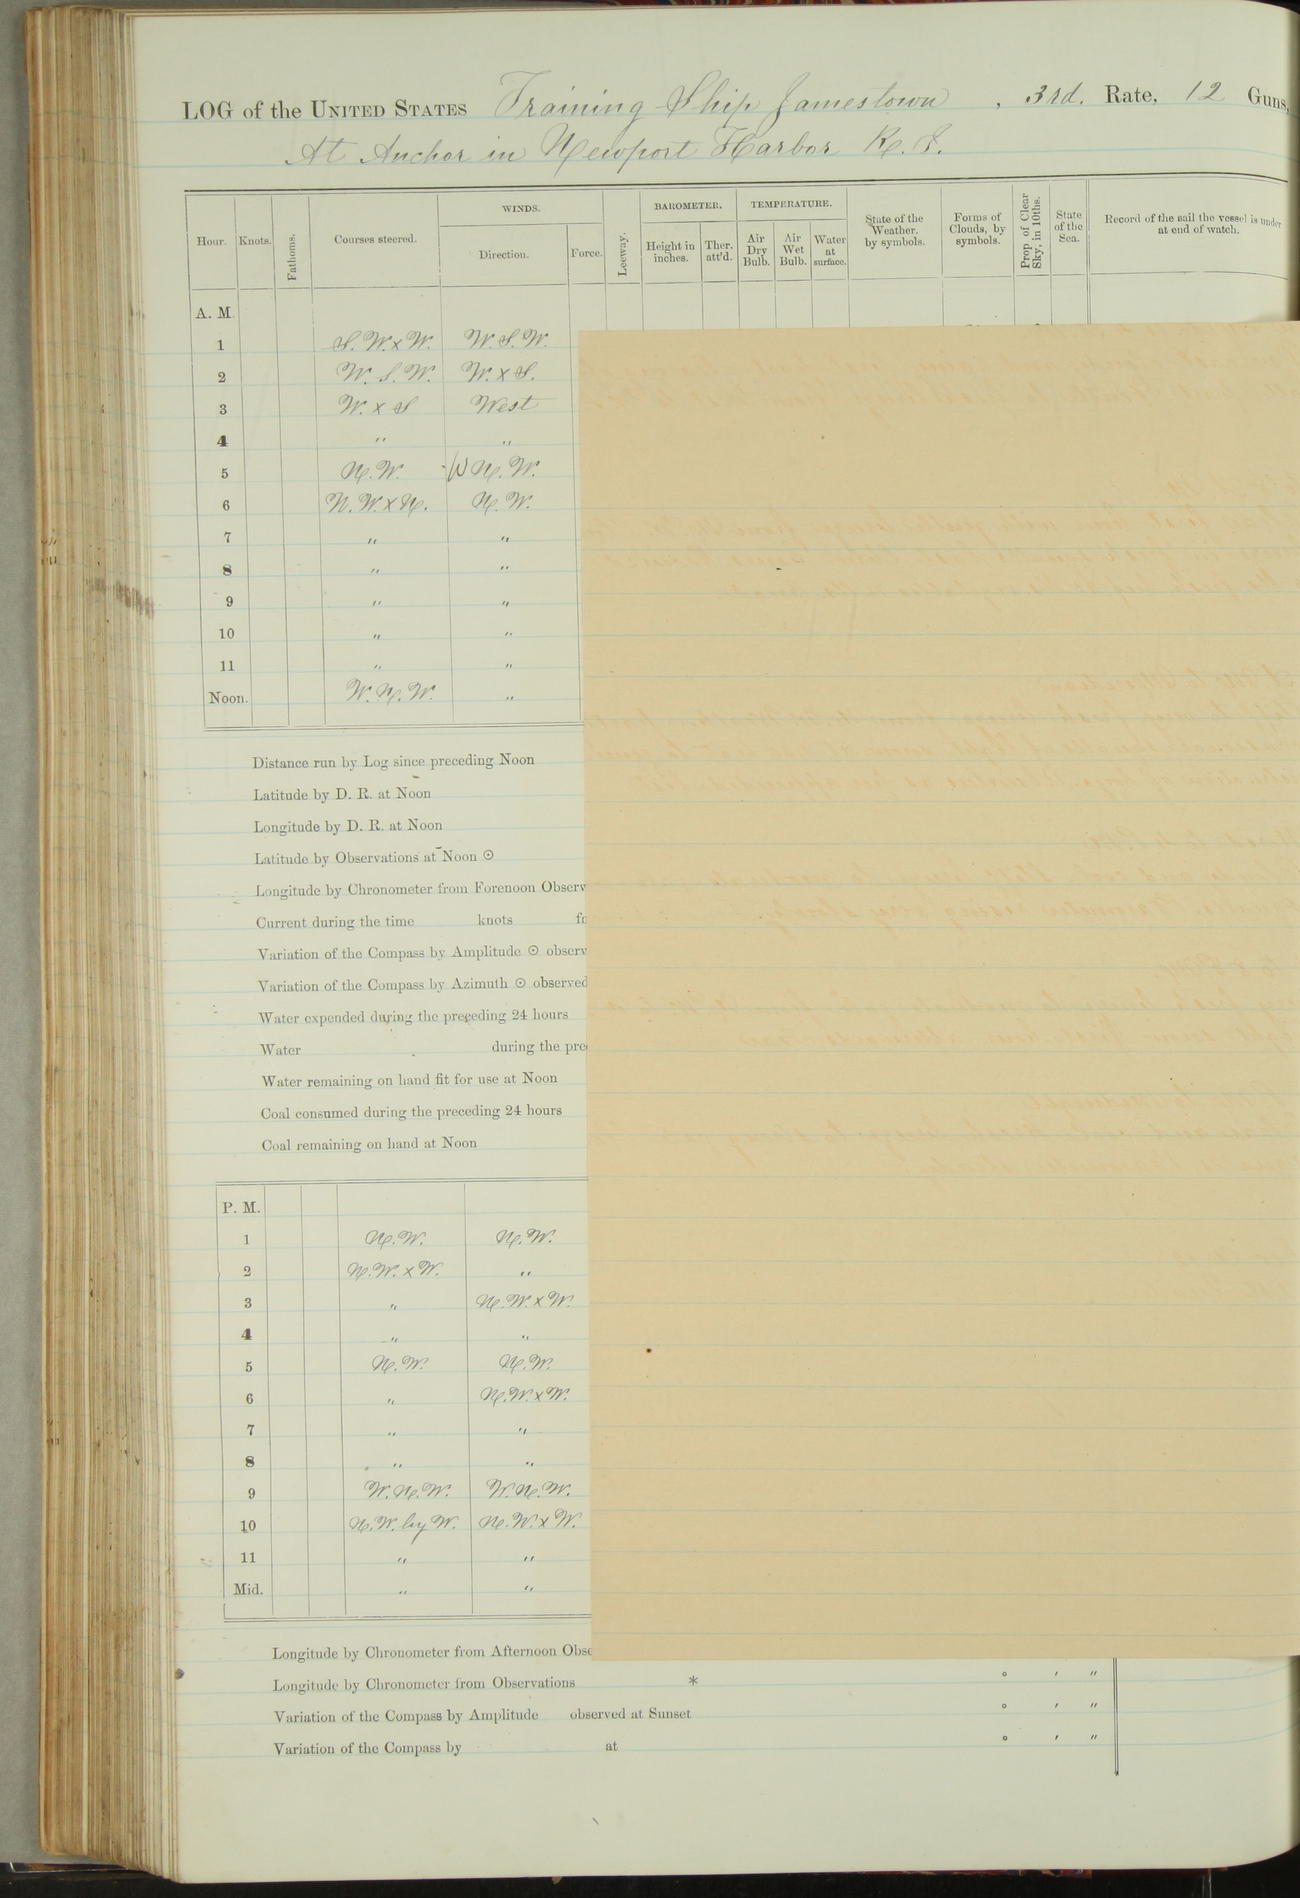 LOG of the UNITED STATES Training Ship Jamestown, 3rd. Rate, 12 Guns,
At Anchor in Newport Harbor R. I.
Hour. Knots. Fathoms. Courses steered. WINDS. Direction. Force. Leeway. BAROMETER. Height in inches. Ther. att'd. TEMPERATURE. Air Dry Bulb. Air Wet Bulb. Water at surface. State of the Weather. by symbols. Forms of Clouds, by symbols. Prop of Clear Sky, in 10ths. State of the Sea. Record of the sail the vessel is under at end of watch.
A. M.
1 S.W.x W. W.S.W.
2 W.S.W. W.x S.
3 W.x S West
4 " "
5 N.W. W N.W.
6 N.W.x N. N.W.
7 " "
8 " "
9 " "
10 " "
11 " "
Noon. W.N.W. "
Distance run by Log since preceding Noon
Latitude by D. R. at Noon
Longitude by D. R. at Noon
Latitude by Observations at Noon ⊙
Longitude by Chronometer from Forenoon Observ
Current during the time knots fr
Variation of the Compass by Amplitude ⊙ observ
Variation of the Compass by Azimuth ⊙ observed
Water expended during the preceding 24 hours
Water during the pre
Water remaining on hand fit for use at Noon
Coal consumed during the preceding 24 hours
Coal remaining on hand at Noon
P. M.
1 N.W. N.W.
2 N.W.x W. "
3 " N.W.x W.
4 " "
5 N.W. N.W.
6 " N.W.x W.
7 " "
8 " "
9 W.N.W. W.N.W.
10 N.W. by W. N.W.x W.
11 " "
Mid. " "
Longitude by Chronometer from Afternoon Obse
Longitude by Chronometer from Observations * ° ′ ″
Variation of the Compass by Amplitude observed at Sunset ° ′ ″
Variation of the Compass by at ° ′ ″